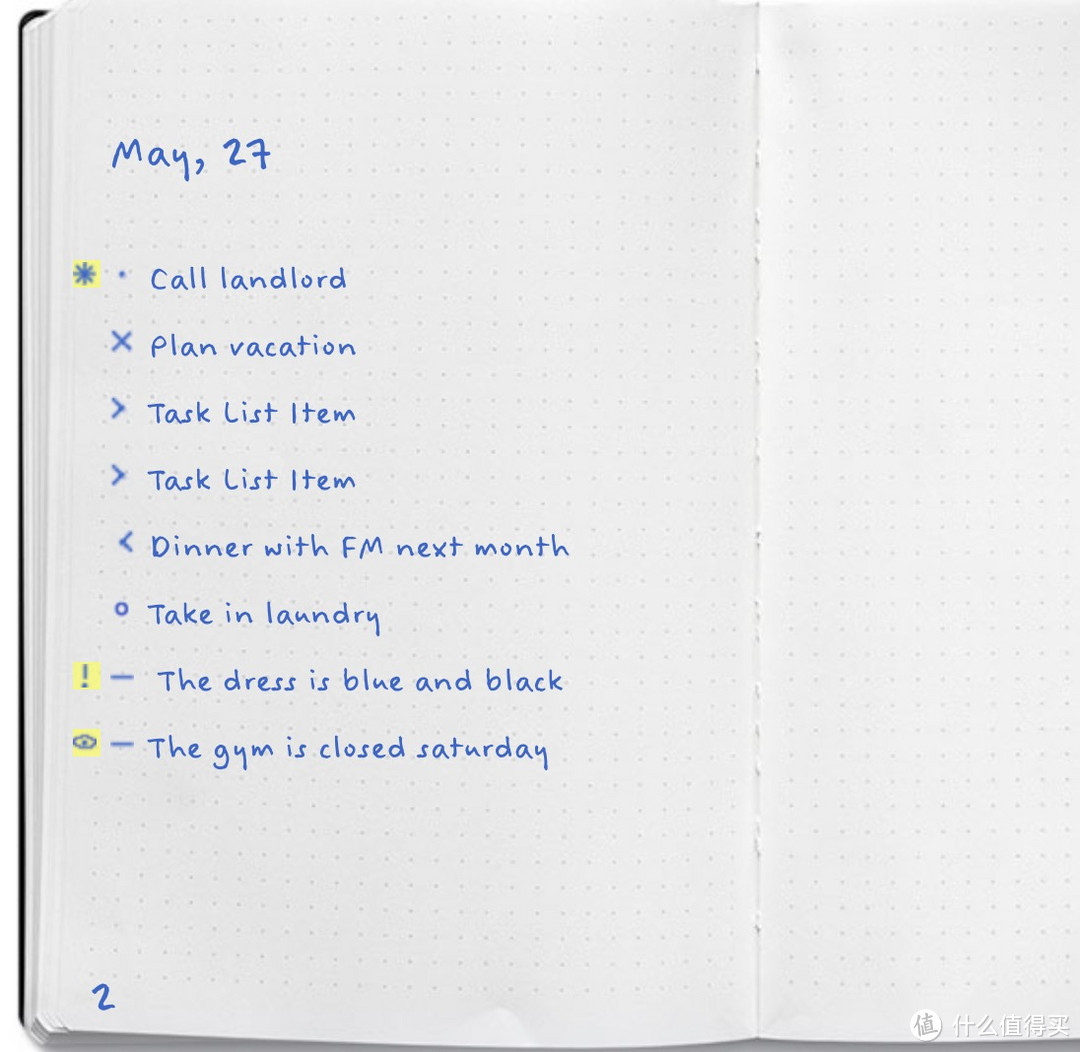 May, 27
* · Call landlord
× Plan vacation
> Task List Item
> Task List Item
< Dinner with FM next month
o Take in laundry
! — The dress is blue and black
— The gym is closed saturday
2
值 什么值得买